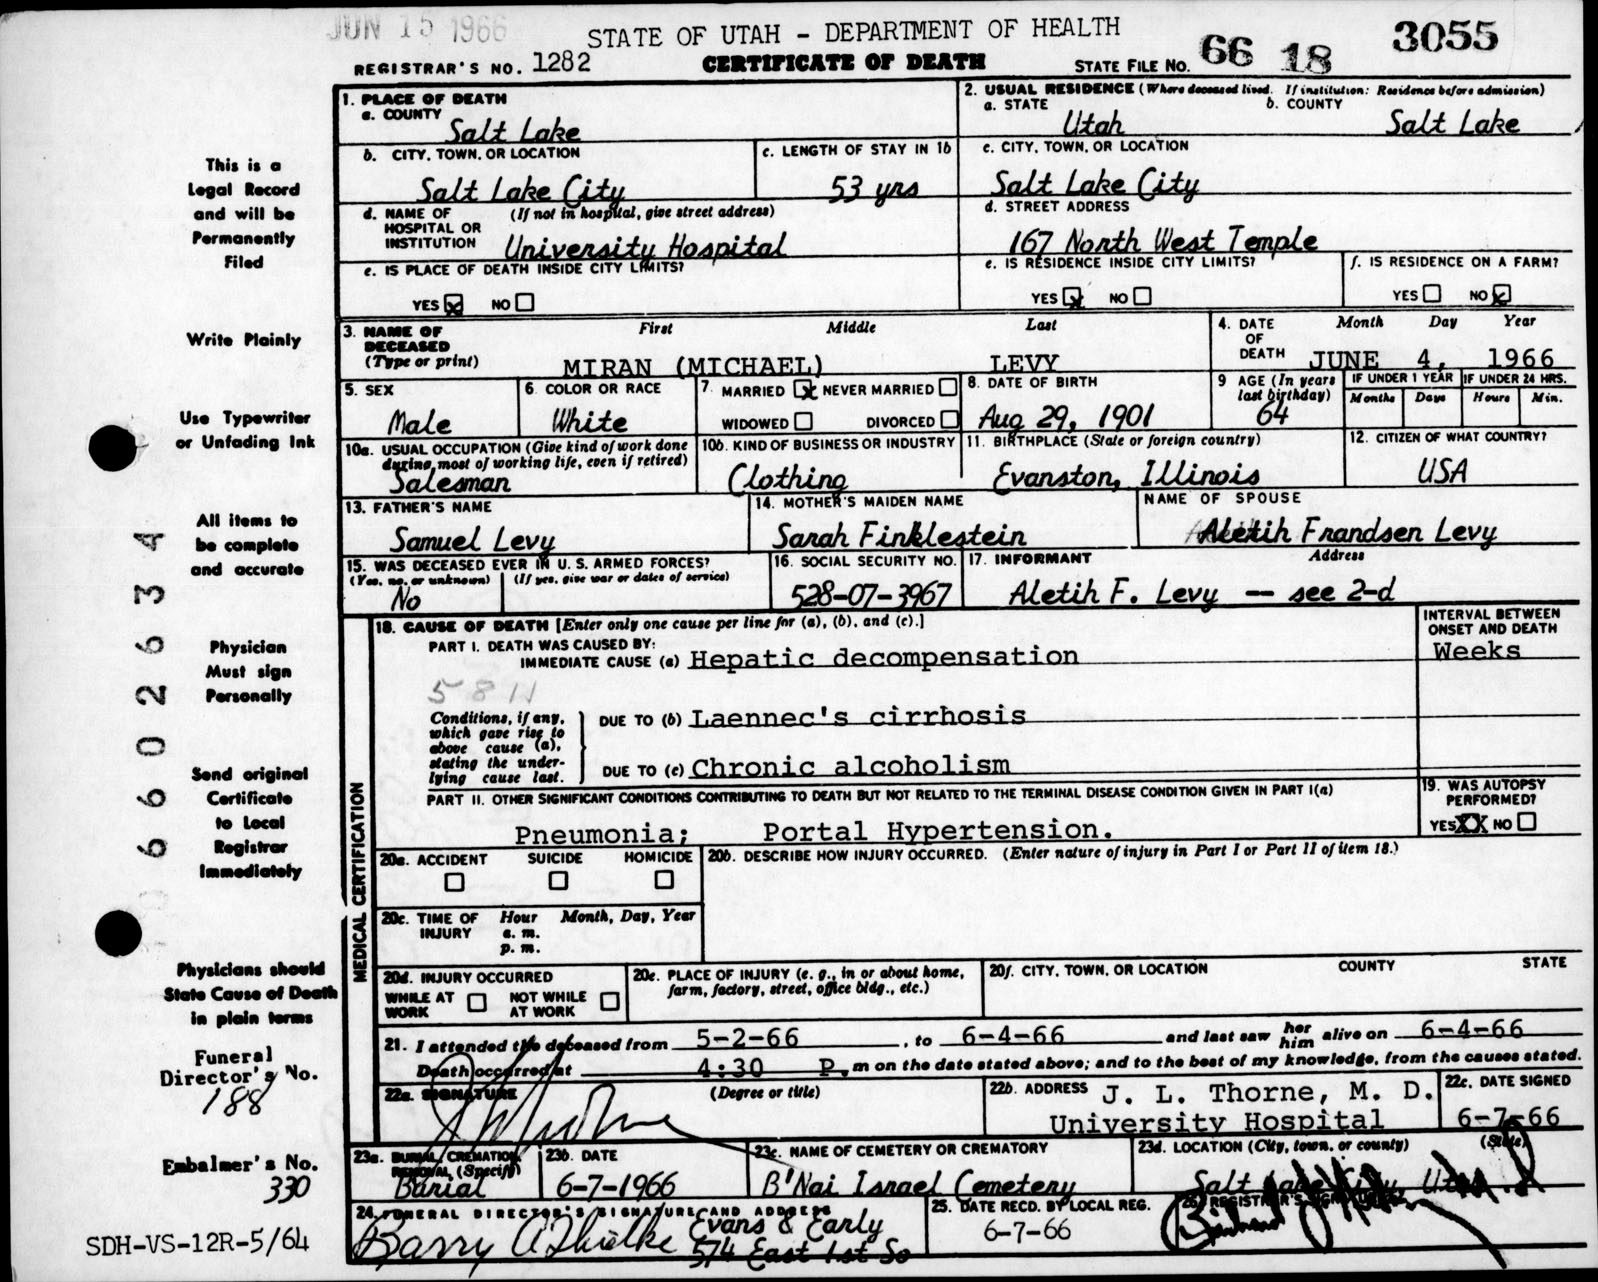 JUN 15 1966
STATE OF UTAH - DEPARTMENT OF HEALTH
3055
REGISTRAR'S NO. 1282 CERTIFICATE OF DEATH STATE FILE NO. 66 18
1. PLACE OF DEATH
a. COUNTY
Salt Lake
2. USUAL RESIDENCE (Where deceased lived. If institution: Residence before admission)
a. STATE b. COUNTY
Utah Salt Lake
b. CITY, TOWN, OR LOCATION
Salt Lake City
c. LENGTH OF STAY IN 1b
53 yrs
c. CITY, TOWN, OR LOCATION
Salt Lake City
d. NAME OF HOSPITAL OR INSTITUTION (If not in hospital, give street address)
University Hospital
d. STREET ADDRESS
167 North West Temple
e. IS PLACE OF DEATH INSIDE CITY LIMITS?
YES x NO
e. IS RESIDENCE INSIDE CITY LIMITS?
YES x NO
f. IS RESIDENCE ON A FARM?
YES NO x
3. NAME OF DECEASED (Type or print)
First Middle Last
MIRAN (MICHAEL) LEVY
4. DATE OF DEATH Month Day Year
JUNE 4, 1966
5. SEX
Male
6. COLOR OR RACE
White
7. MARRIED x NEVER MARRIED
WIDOWED DIVORCED
8. DATE OF BIRTH
Aug 29, 1901
9 AGE (In years last birthday)
64
IF UNDER 1 YEAR IF UNDER 24 HRS.
Months Days Hours Min.
10a. USUAL OCCUPATION (Give kind of work done during most of working life, even if retired)
Salesman
10b. KIND OF BUSINESS OR INDUSTRY
Clothing
11. BIRTHPLACE (State or foreign country)
Evanston, Illinois
12. CITIZEN OF WHAT COUNTRY?
USA
13. FATHER'S NAME
Samuel Levy
14. MOTHER'S MAIDEN NAME
Sarah Finklestein
NAME OF SPOUSE
Aletih Frandsen Levy
15. WAS DECEASED EVER IN U. S. ARMED FORCES?
(Yes, no, or unknown) (If yes, give war or dates of service)
No
16. SOCIAL SECURITY NO.
528-07-3967
17. INFORMANT Address
Aletih F. Levy — see 2-d
MEDICAL CERTIFICATION
18. CAUSE OF DEATH [Enter only one cause per line for (a), (b), and (c).]
INTERVAL BETWEEN ONSET AND DEATH
PART I. DEATH WAS CAUSED BY:
IMMEDIATE CAUSE (a) Hepatic decompensation Weeks
5811
Conditions, if any, which gave rise to above cause (a), stating the underlying cause last.
DUE TO (b) Laennec's cirrhosis
DUE TO (c) Chronic alcoholism
PART II. OTHER SIGNIFICANT CONDITIONS CONTRIBUTING TO DEATH BUT NOT RELATED TO THE TERMINAL DISEASE CONDITION GIVEN IN PART I(a)
Pneumonia; Portal Hypertension.
19. WAS AUTOPSY PERFORMED?
YES XX NO
20a. ACCIDENT SUICIDE HOMICIDE
20b. DESCRIBE HOW INJURY OCCURRED. (Enter nature of injury in Part I or Part II of item 18.)
20c. TIME OF INJURY Hour Month, Day, Year
a. m.
p. m.
20d. INJURY OCCURRED
WHILE AT WORK NOT WHILE AT WORK
20e. PLACE OF INJURY (e. g., in or about home, farm, factory, street, office bldg., etc.)
20f. CITY, TOWN, OR LOCATION COUNTY STATE
21. I attended the deceased from 5-2-66, to 6-4-66 and last saw her him alive on 6-4-66
Death occurred at 4:30 P. m on the date stated above; and to the best of my knowledge, from the causes stated.
22a. SIGNATURE (Degree or title)
22b. ADDRESS J. L. Thorne, M. D.
University Hospital
22c. DATE SIGNED
6-7-66
23a. BURIAL, CREMATION, REMOVAL (Specify)
Burial
23b. DATE
6-7-1966
23c. NAME OF CEMETERY OR CREMATORY
B'Nai Israel Cemetery
23d. LOCATION (City, town, or county) (State)
Salt Lake City, Utah
24. FUNERAL DIRECTOR'S SIGNATURE AND ADDRESS
Barry Evans & Early
574 East 1st So
25. DATE RECD. BY LOCAL REG.
6-7-66
26. REGISTRAR'S SIGNATURE
This is a
Legal Record
and will be
Permanently
Filed
Write Plainly
Use Typewriter
or Unfading Ink
All items to
be complete
and accurate
Physician
Must sign
Personally
Send original
Certificate
to Local
Registrar
Immediately
Physicians should
State Cause of Death
in plain terms
Funeral
Director's No.
188
Embalmer's No.
330
SDH-VS-12R-5/64
660260234